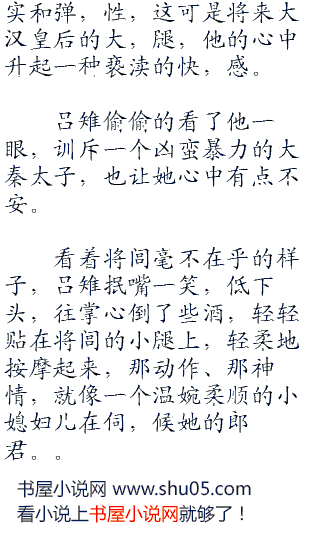 实和弹，性，这可是将来大
汉皇后的大，腿，他的心中
升起一种亵渎的快，感。
吕雉偷偷的看了他一
眼，训斥一个凶蛮暴力的大
秦太子，也让她心中有点不
安。
看着将闾毫不在乎的样
子，吕雉抿嘴一笑，低下
头，往掌心倒了些酒，轻轻
贴在将闾的小腿上，轻柔地
按摩起来，那动作、那神
情，就像一个温婉柔顺的小
媳妇儿在伺，候她的郎
君。。
书屋小说网 www.shu05.com
看小说上书屋小说网就够了！